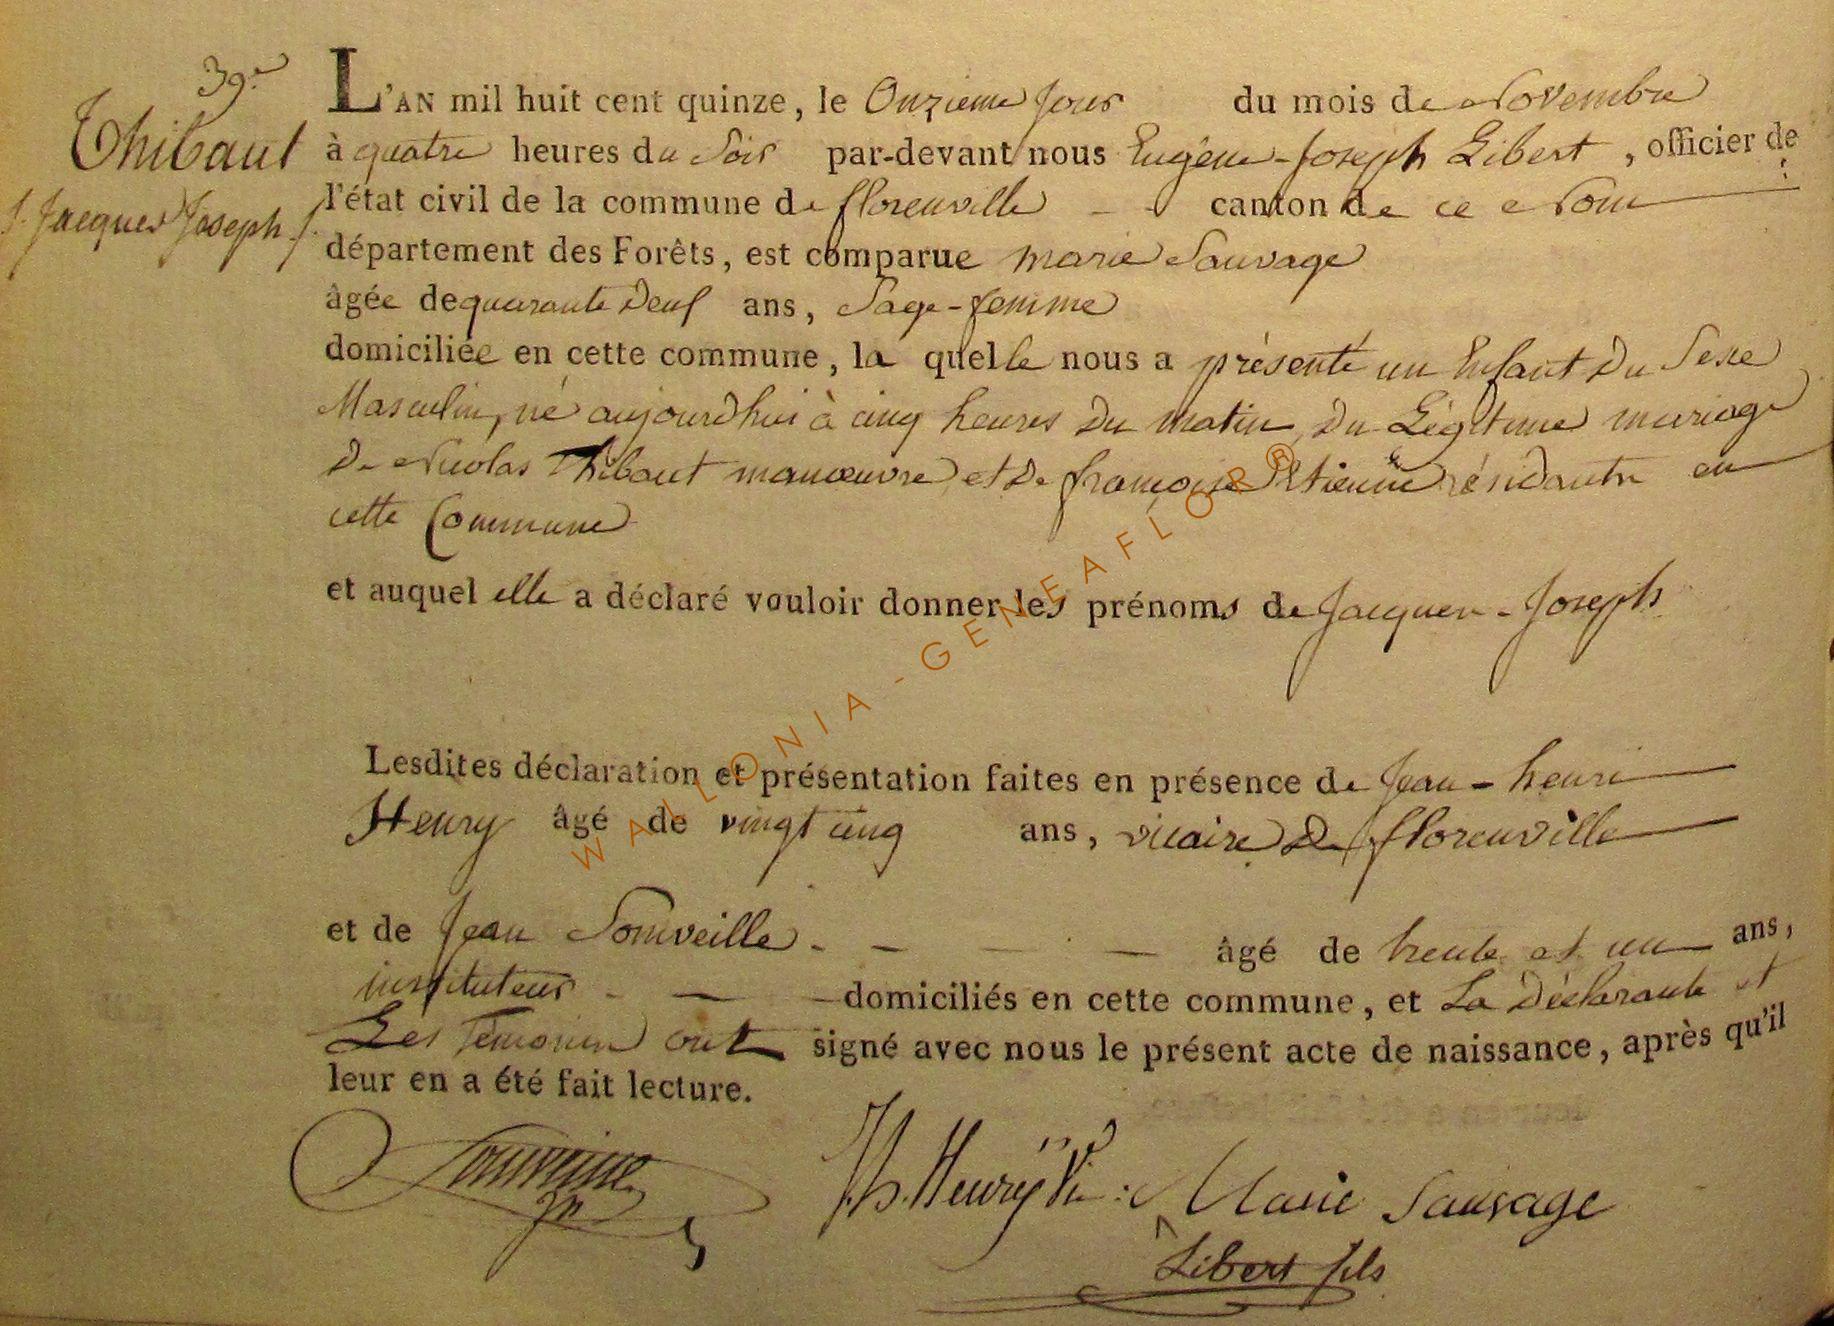 39.e
Thibaut
Jacques Joseph
L'AN mil huit cent quinze, le Onzieme jour du mois de Novembre
à quatre heures du Soir par-devant nous Eugéne-Joseph Libert, officier de
l'état civil de la commune de florenville canton de ce Nom
département des Forêts, est comparue marie Sauvage
âgée de quarante Deux ans, Sage-femme
domiciliée en cette commune, la quelle nous a présenté un Enfant Du Sexe
Masculin, né aujourdhui à cinq heures Du matin, Du Légitime mariage
De Nicolas Thibaut manœuvre et De françoise Etienne résidante en
cette Commune
et auquel elle a déclaré vouloir donner les prénoms de Jacques-Joseph
Lesdites déclaration et présentation faites en présence de Jean-henri
Henry âgé de vingt cinq ans, vicaire De florenville
et de Jean Somveille âgé de trente et un ans,
instituteur domiciliés en cette commune, et La Déclarante et
Les Témoins ont signé avec nous le présent acte de naissance, après qu'il
leur en a été fait lecture.
J.h. Henrÿ Vic: Marie Sauvage
Libert fils
WALLONIA-GENEAFLOR®